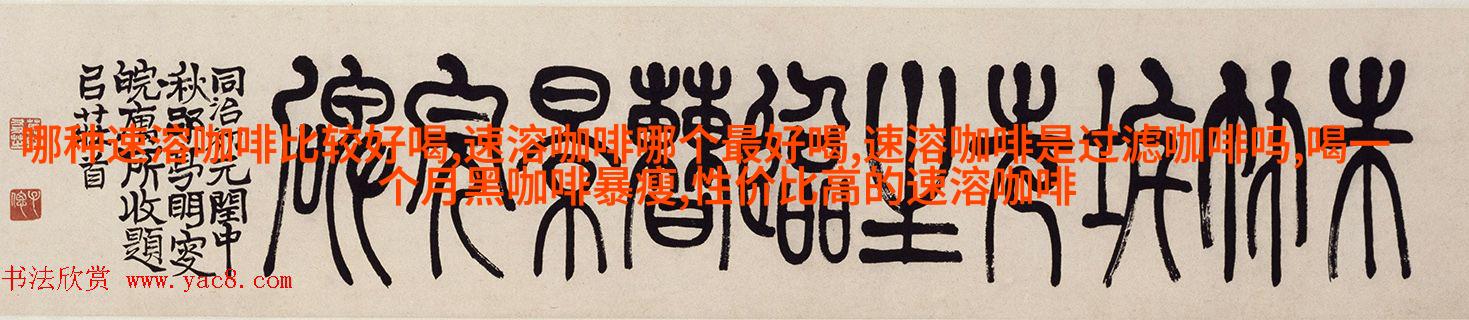 朱竹垞先生臨曹景完碑
同治初元閏中
秋
皖所收題
首
哪种速溶咖啡比较好喝,速溶咖啡哪个最好喝,速溶咖啡是过滤咖啡吗,喝一
个月黑咖啡暴瘦,性价比高的速溶咖啡
书法欣赏 www.yac8.com